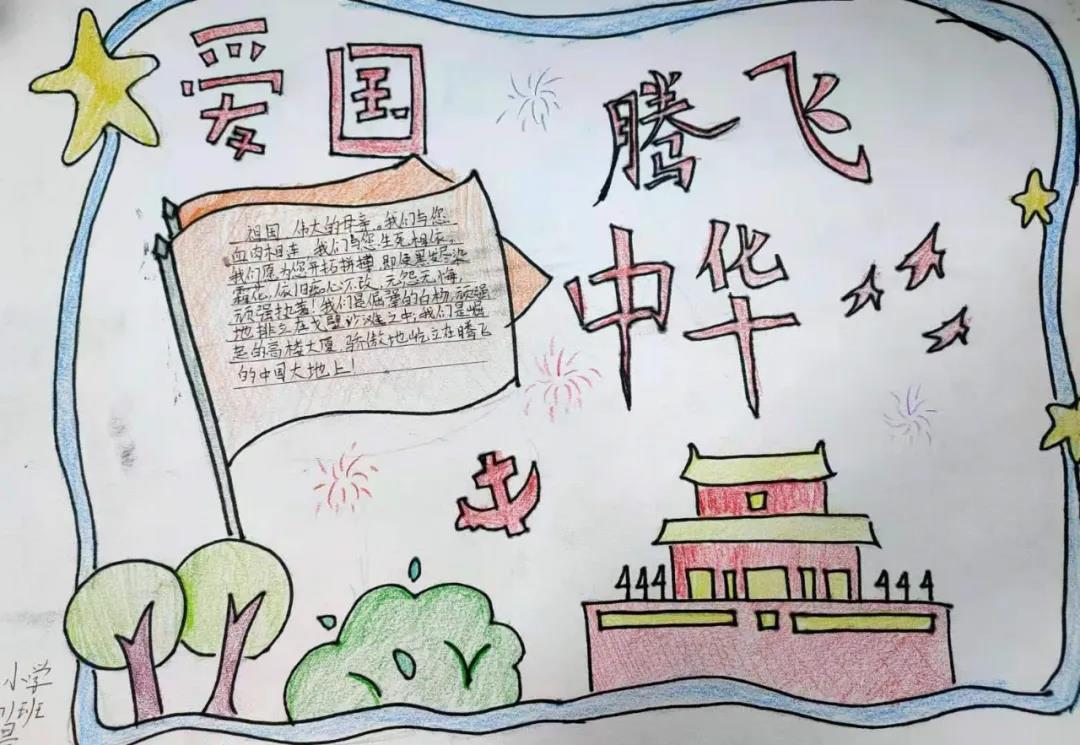 爱国
腾飞
中华
祖国 伟大的母亲。我们与您
血肉相连，我们与您生死相依，
我们愿为您开拓拼搏，即使黑发尽染
霜花，依旧痴心不改，无怨无悔，
顽强执著！我们是倔犟的白杨，顽强
地排立在戈壁沙滩之中；我们是崛
起的高楼大厦，骄傲地屹立在腾飞
的中国大地上！
小学
班